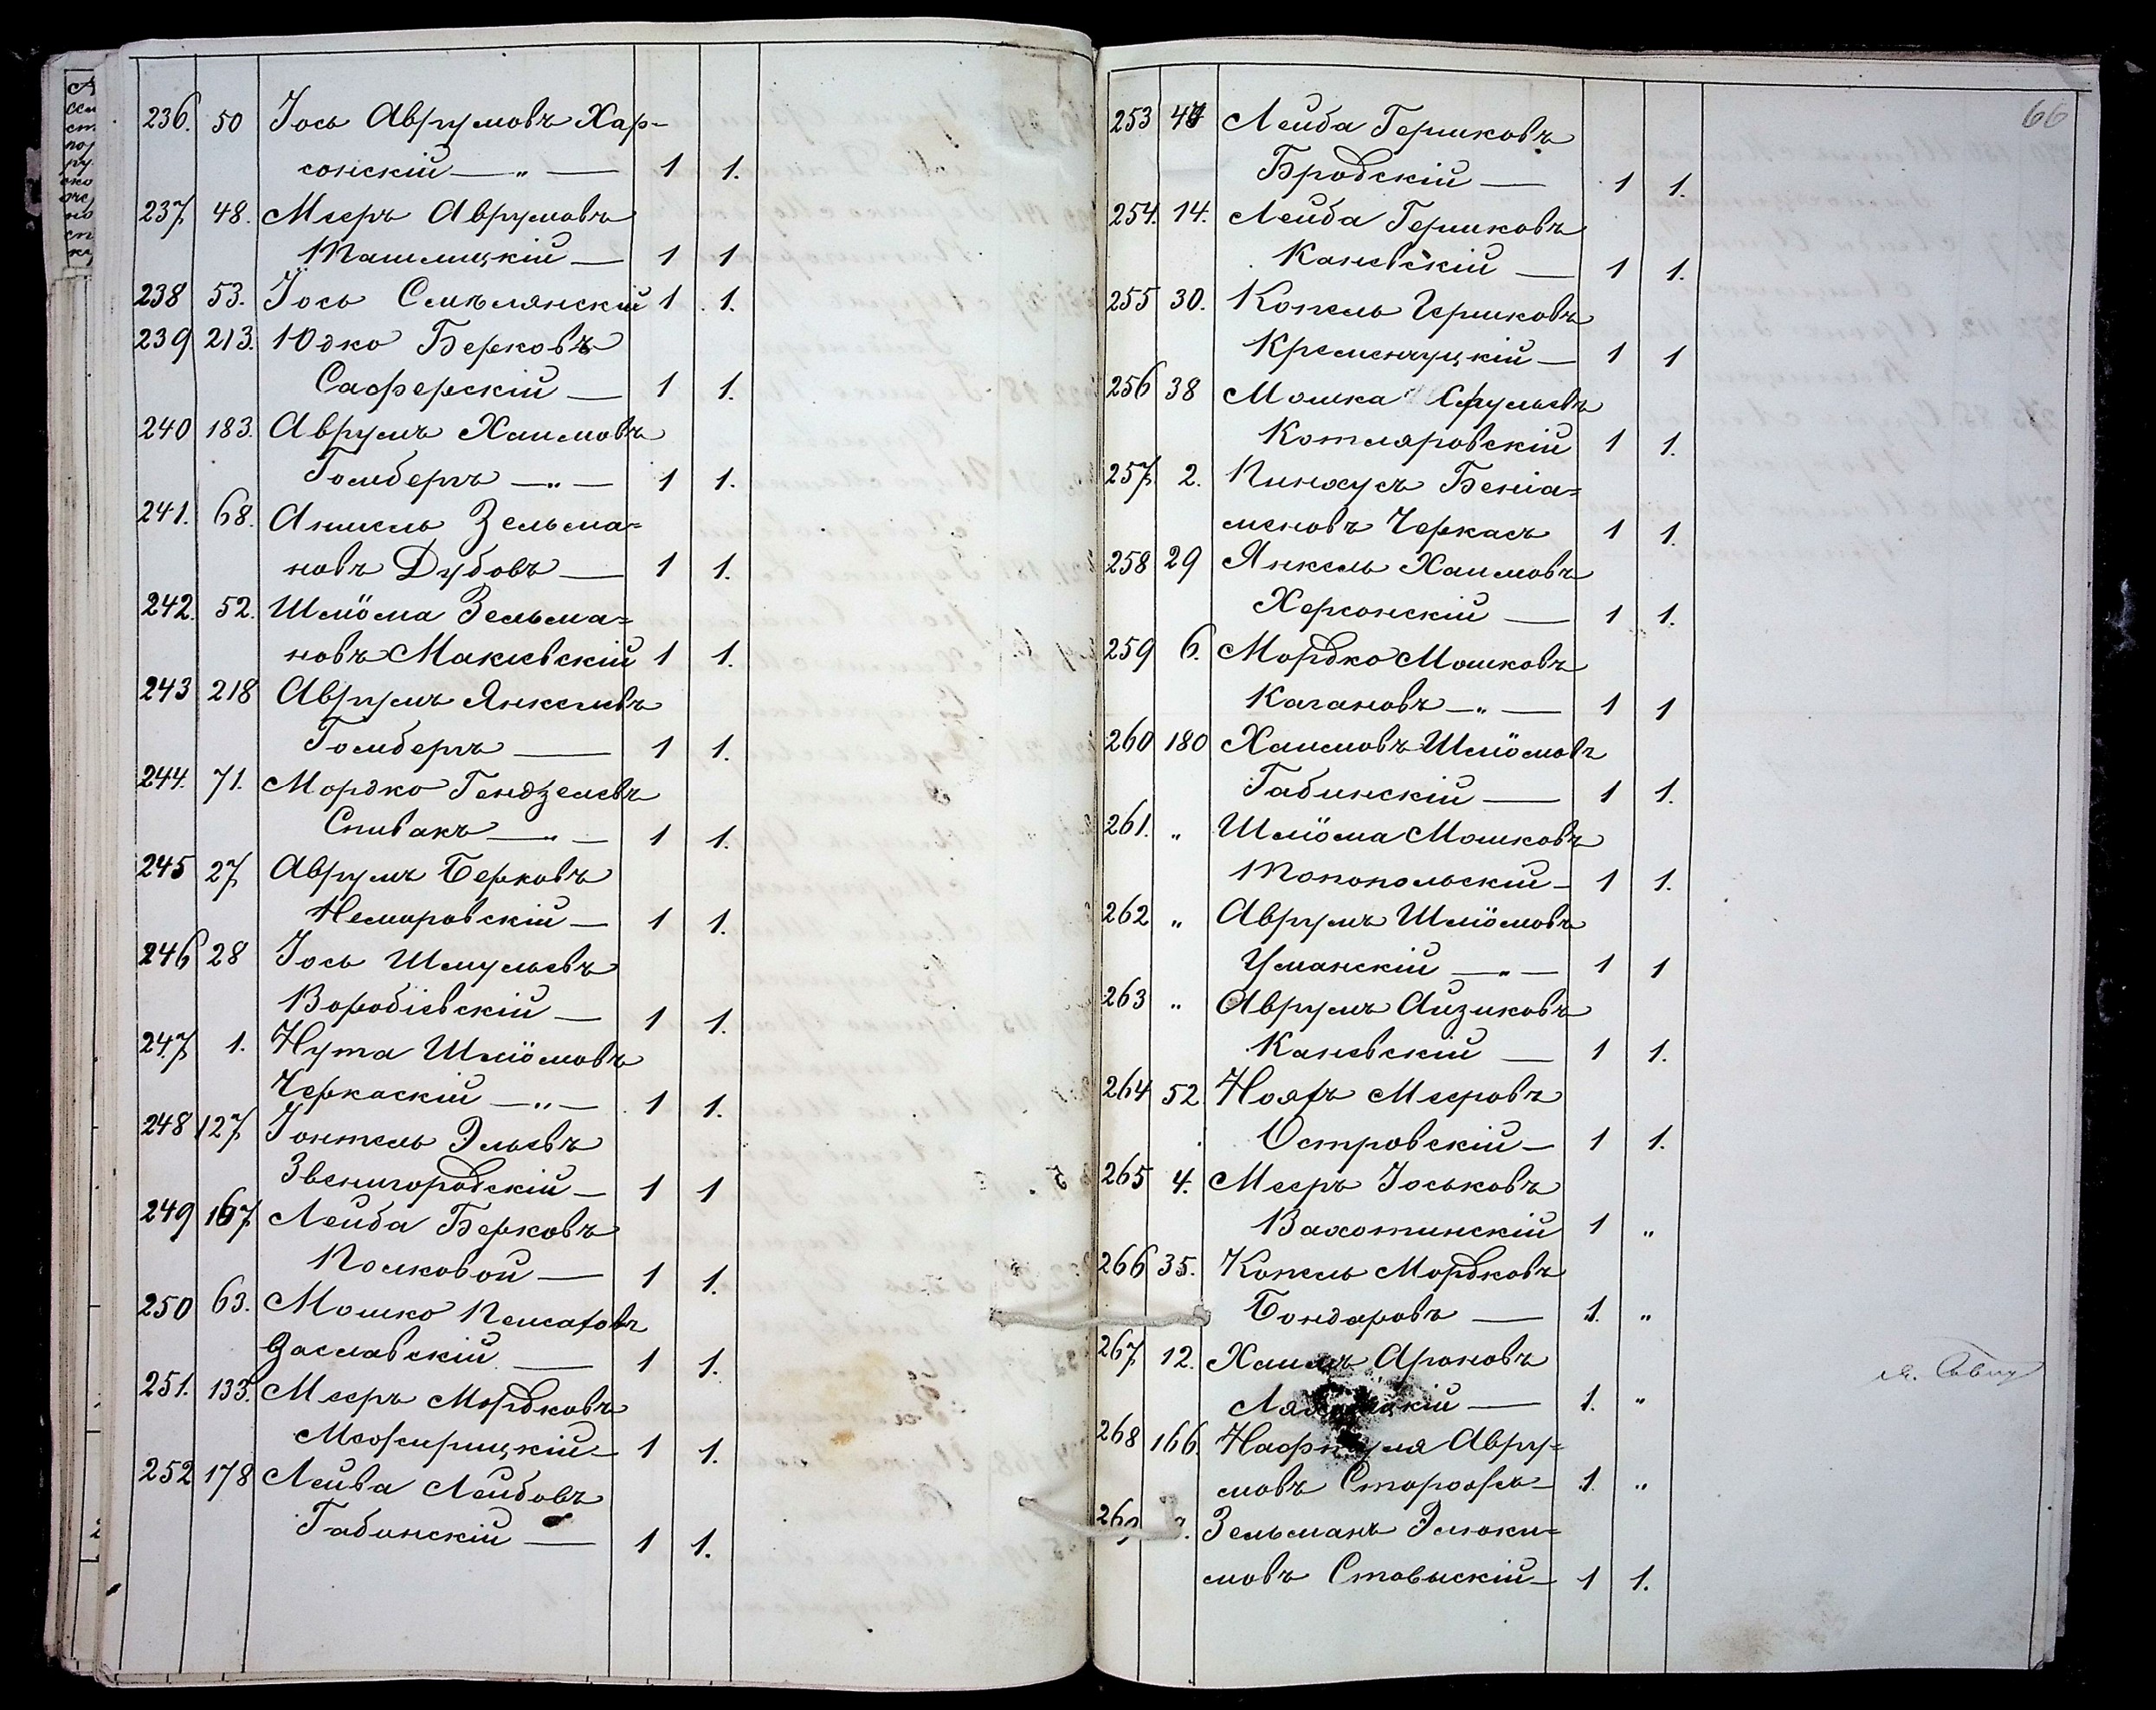 236. 50 Іось Аврумовъ Хар-
сонскій —"— 1 1.
237. 48. Мееръ Аврумовъ
Ташлицкій — 1 1
238 53. Іось Смѣлянскій 1 1.
239 213. Юдко Берковъ
Саферскій — 1 1.
240 183. Аврумъ Хаимовъ
Гомбергъ —"— 1 1.
241. 68. Аншель Зельма=
новъ Дубовъ — 1 1.
242. 52. Шліома Зельма=
новъ Макіевскій 1 1.
243 218 Аврумъ Янкелевъ
Гомбергъ — 1 1.
244. 71. Мордко Гендзелевъ
Спивакъ —"— 1 1.
245 27 Аврумъ Берковъ
Немировскій — 1 1.
246 28 Іось Шмульевъ
Воробіевскій — 1 1.
247 1. Нута Шліомовъ
Черкаскій —"— 1 1.
248 127 Іонтель Эльевъ
Звенигородскій — 1 1
249 167 Лейба Берковъ
Полковой — 1 1.
250 63. Мошко Пейсаховъ
Заславскій — 1 1.
251. 133. Мееръ Мордковъ
Межирицкій — 1 1.
252 178 Лейва Лейбовъ
Габинскій — 1 1.
66
253 47 Лейба Гершковъ
Бродскій — 1 1.
254. 14. Лейба Гершковъ
Каневскій — 1 1.
255 30. Копель Гершковъ
Кременчуцкій — 1 1
256 38 Мошка Срульевъ
Котляровскій 1 1.
257. 2. Пинхусъ Беніа=
меновъ Черкасъ 1 1.
258 29 Янкель Хаимовъ
Херсонскій — 1 1.
259 6. Мордко Мошковъ
Кагановъ —"— 1 1
260 180 Хаимовъ Шліомовъ
Габинскій — 1 1.
261. " Шліома Мошковъ
Топопольскій — 1 1.
262 " Аврумъ Шліомовъ
Уманскій —"— 1 1
263 " Аврумъ Айзиковъ
Каневскій — 1 1.
264 52 Нояхъ Мееровъ
Островскій — 1 1.
265 4. Мееръ Іоськовъ
Вахотинскій 1 "
266 35. Копель Мордковъ
Бондаровъ — 1. "
267 12. Хаимъ Ароновъ
— 1. "
268 166. Нафтула Авру=
мовъ Сторожъ — 1. "
269 Зельманъ Элюки=
мовъ Ставыскій — 1 1.